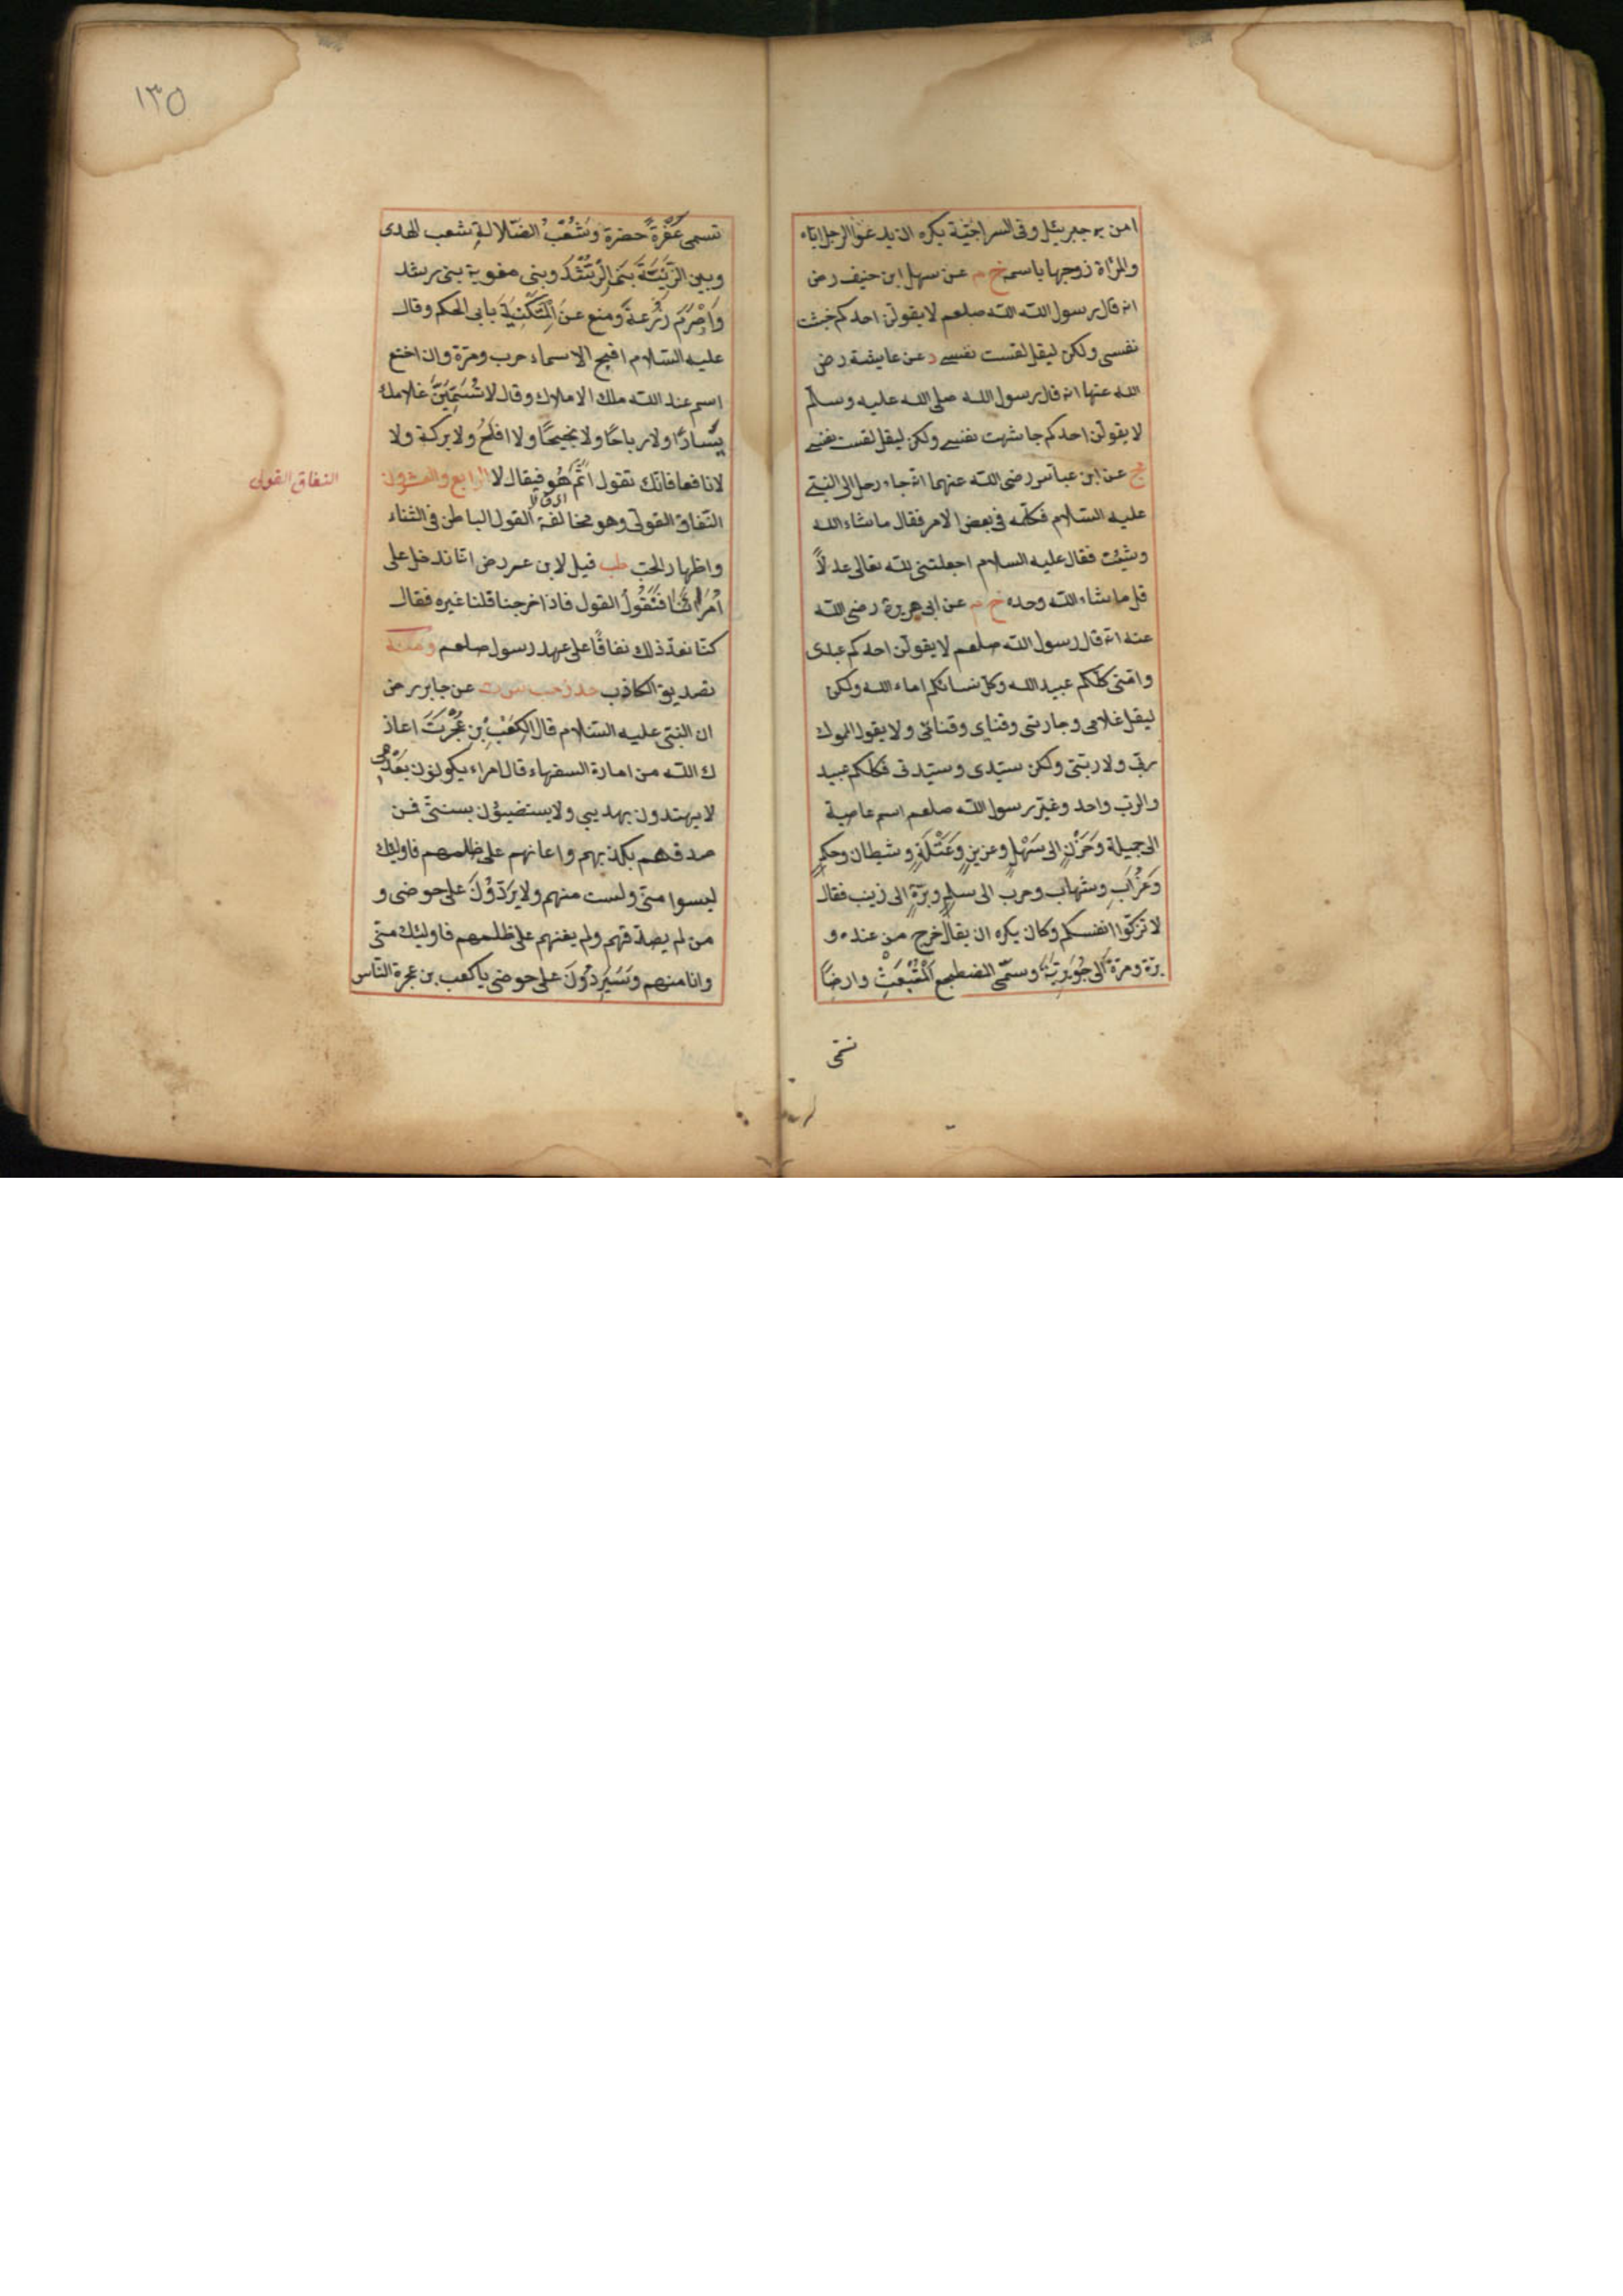 امن به جبريئل وفى السراجية يكره ان يدعو الرجل اباه
والمرأة زوجها باسمه خ م عن سهل ابن حنيف رض
انه قال رسول الله صلعم لا يقولن احدكم خبثت
نفسى ولكن ليقل لقست نفسى د عن عايشة رض
الله عنها انه قال رسول الله صلى الله عليه وسلم
لا يقولن احدكم جاشت نفسى ولكن ليقل لقست نفسى
مج عن ابن عباس رضى الله عنهما انه جاء رجل الى النبى
عليه السلام فكلمه فى بعض الامر فقال ما شاء الله
وشئت فقال عليه السلام اجعلتنى لله تعالى عدلاً
قل ما شاء الله وحده خ م عن ابى هريرة رضى الله
عنه انه قال رسول الله صلعم لا يقولن احدكم عبدى
وامتى كلكم عبيد الله وكل نسائكم اماء الله ولكن
ليقل غلامى وجاريتى وفتاى وفتاتى ولا يقول المملوك
ربى ولا ربتى ولكن سيدى وسيدتى فكلكم عبيد
والرب واحد وغير رسول الله صلعم اسم عاصية
الى جميلة وحَزْنٍ الى سَهْلٍ وعزيزٍ وعَتْلَةٍ وشيطان وحكمٍ
وغُرَابٍ وشهاب وحرب الى سلمٍ وبرّةٍ الى زينب فقال
لا تزكّوا انفسكم وكان يكره ان يقال خرج من عنده و
برّة ومرّة الى جُوَيرية وسمّى المضطجع المُنْبَعِثْ وارضاً
تسمى
١٣٥
تسمى عَفْرَةً خضرة وشعْبُ الضّلالةِ شعب الهدى
وبين الزنية بنى الرشد وبنى مغوية بنى رشد
واصرم زُرعة ومنع عن التكنية بابى الحكم وقال
عليه السلام اقبح الاسماء حرب ومرّة وان اخنع
اسم عند الله ملك الاملاك وقال لا تُسَمِّيَنَّ غلامك
يساراً ولا رباحًا ولا نجيحًا ولا افلحُ ولا بركة ولا
لا نافعا فانك تقول اثَمّ هُو فيقال لا الرابع والعشرون
النفاق القولى
النّفاق القولى وهو مخالفة القول الباطن فى الثناء
واظهار الحب طب قيل لابن عمر رض انا ندخل على
اُمَرائنا فنَقُولُ القول فاذا خرجنا قلنا غيره فقال
كنّا نعدّ ذلك نفاقًا على عهد رسول صلعم ومنه
تصديق الكاذب عن جابر رض
ان النبى عليه السلام قال لِكَعْبِ بْنِ عُجْرَتَ اعاذ
ك الله من امارة السفهاء قال امراء يكونون بَعْدى
لا يهتدون بهديى ولا يستضيئون بسنتى فمن
صدقهم بكذبهم واعانهم على ظلمهم فاولئك
ليسوا منى ولست منهم ولا يَرِدُونَ على حوضى و
من لم يصدقهم ولم يعنهم على ظلمهم فاولئك منى
وانا منهم وسَيَرِدُونَ على حوضى يا كعب بن عجرة النّاس